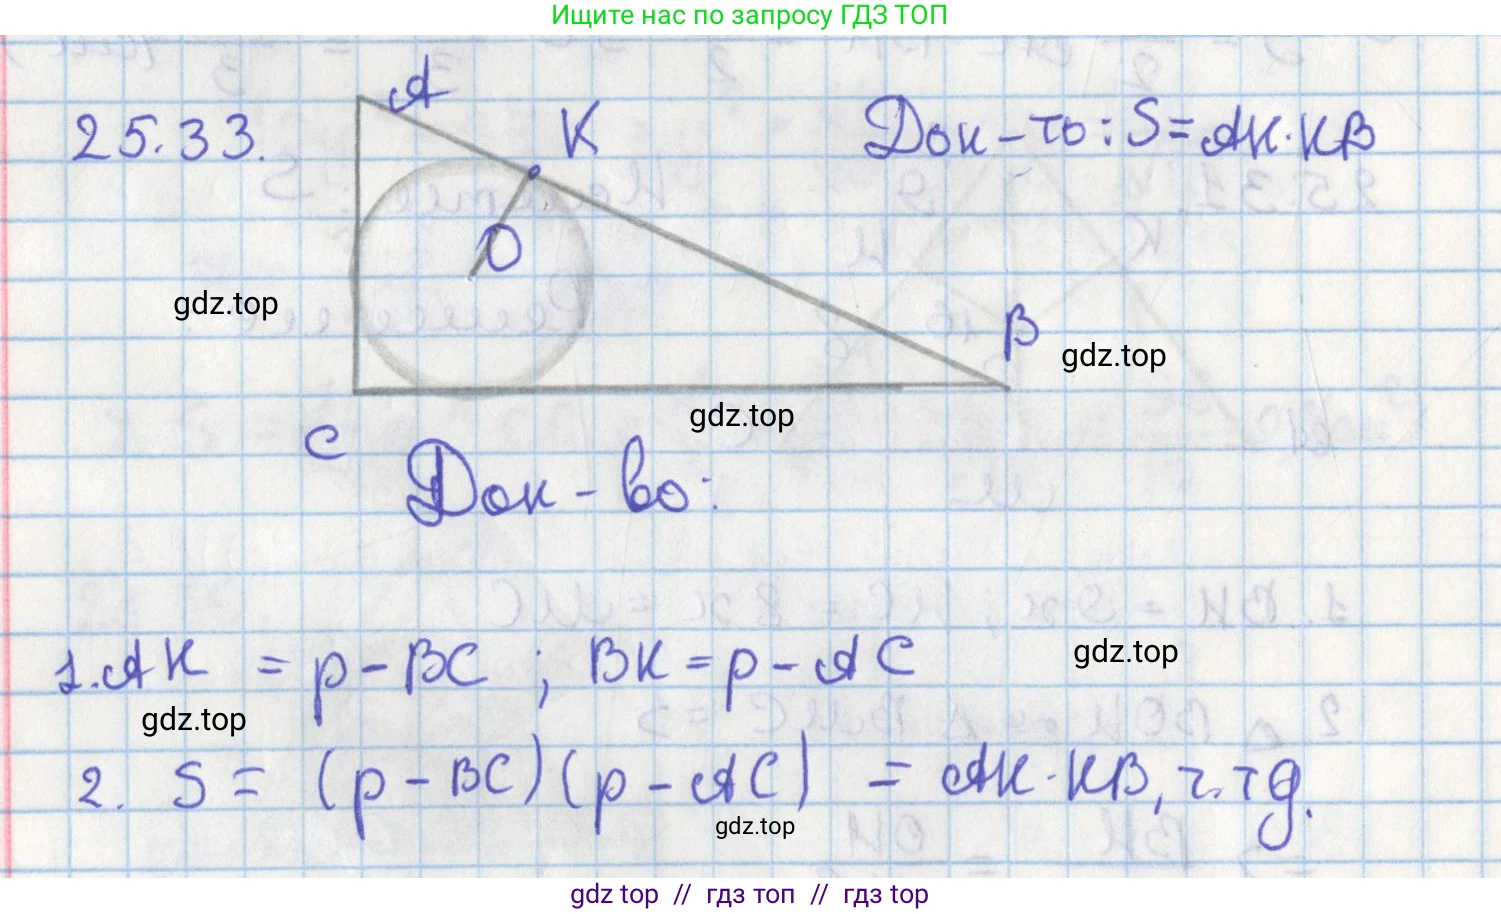 Ищите нас по запросу ГДЗ ТОП
25.33.
А
К
О
В
С
Док-ть: S = АК · КВ
gdz.top
gdz.top
gdz.top
Док-во:
1. АК = p - BC ; BK = p - AC
gdz.top
gdz.top
2. S = (p - BC)(p - AC) = АК · КВ, ч.тд.
gdz.top
gdz top // гдз топ // гдз top